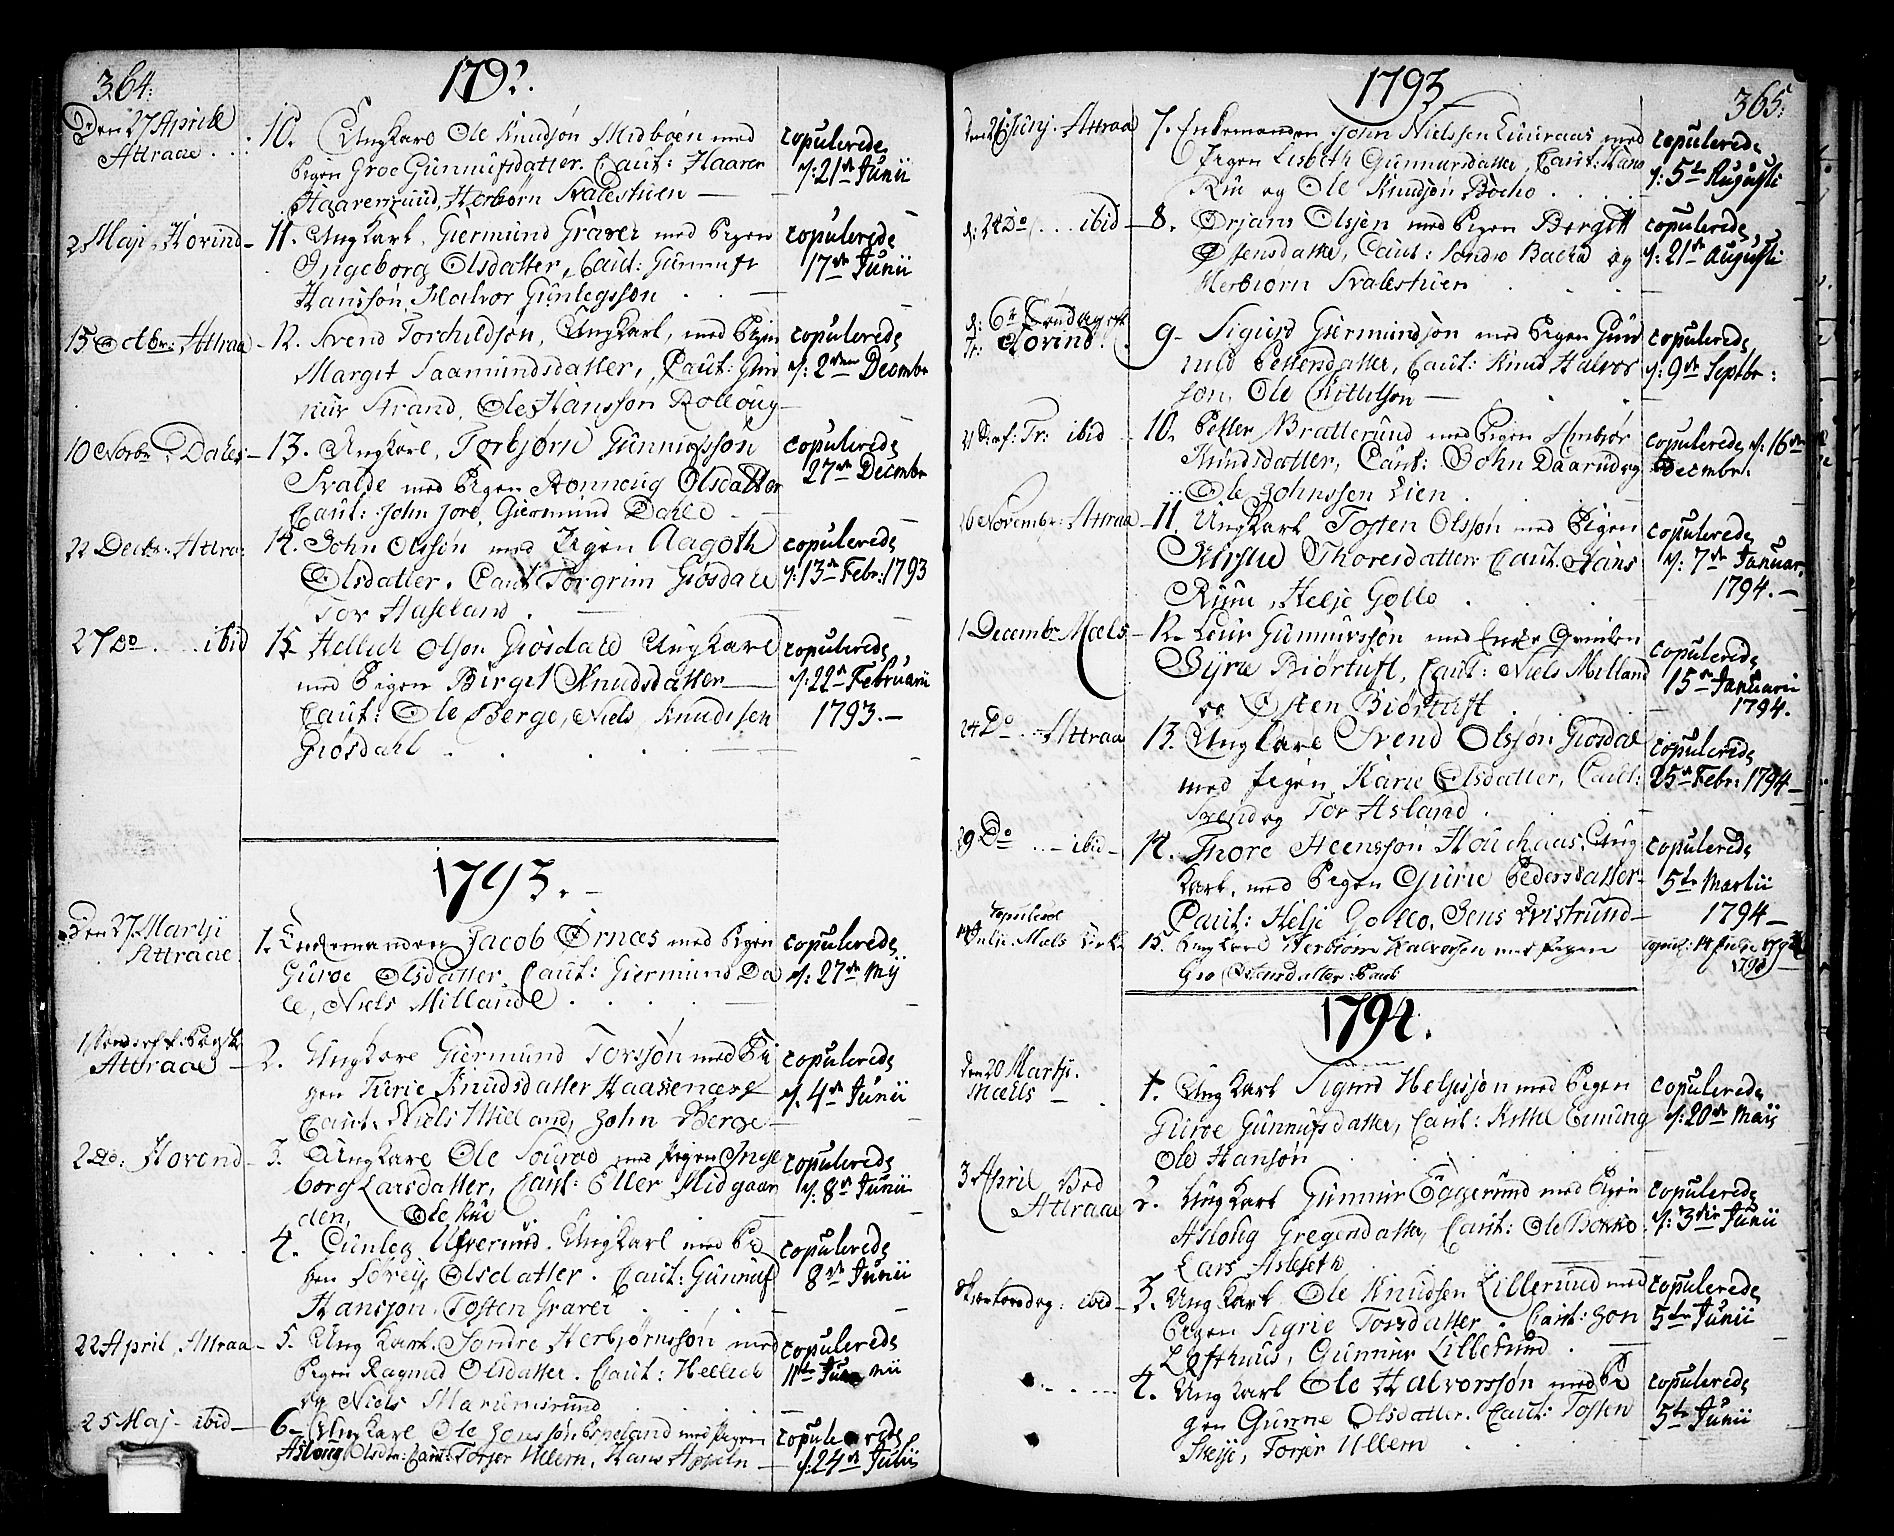 364.
1792.
Den 27 Aprile
Attraae
10. Ungkarl Ole Knudsøn Midboen med
Pigen Groe Gunnufsdatter. Caut: Haaver
Haaverud, Herbørn Svalestuen
copulerede
d: 21de Junii
2 Maji Hovind
11. Ungkarl, Giermund Graver med Pigen
Ingeborg Olsdatter, Caut: Gunnuf
Hanssøn, Halvor Gunlegssøn
copulerede
17de Junii
15 Octbr: Attraa
12. Svend Torchildsøn, Ungkarl, med Pigen
Margit Saamundsdatter, Caut: Gun
nur Strand, Ole Hanssøn Rolloug
copulerede
d: 2den Decembr
10 Novbr Dales
13. Ungkarl, Torbjørn Gunnufssøn
Svalde med Pigen Rønnoug Olsdatter
Caut: John Jore, Giermund Dahle
copulerede
27de Decembr
22 Decbr. Attra:
14. John Olssøn med Pigen Aagoth
Olsdatter. Caut Torgrim Giøsdale
Tor Haseland.
copulerede
d: 13de Febr: 1793
27 Do ibid
15 Hellich Olsøn Giøsdale Ungkarl
med Pigen Birgit Knudsdatter
Caut: Ole Berge, Niels Knudssen
Giøsdahl
copulerede
d: 22de Februarii
1793.
1793.
Den 27 Martji
Attraae
1. Enkemanden Jacob Ørnæs med Pigen
Guroe Olsdatter, Caut: Giermund Da
le, Niels Millande
copulerede
d: 27de Mij
Attraae
2. Ungkarl Giermund Torssøn med Pi
gen Turie Knudsdatter Haasenæs
Caut. Niels Milland, John Berge
copulerede
d. 4de Junii
2 Do: Hovend
3. Ungkarl Ole Sourod med Pigen Inge
borg Larsdatter, Caut: Eller Midgaar
den, Ole Rue
copulerede
d: 8de Junii
4. Gunleg Ufverund. Ungkarl med Pi
gen Sørey Olsdatter. Caut: Gunnuf
Hanssøn. Tosten Graver
copulerede
8de Junii
22 April, Attraa
5. Ung Karl. Søndre Herbjørnssøn med
Pigen Ragnild Olsdatter. Caut: Hellich
og Niels Marumsrund
copulerede
11te Junii
25 Maj ibid
6 Ungkarl Ole Jonssøn Espeland med Pigen
Aslaug Olsdtr: Caut: Torjer Ullern, Hans
copulerede
d: 24de Julii
1793
365.
den 26 Junj. Attraa
7. Enkemanden John Nielssen Luuraas med
Pigen Lisbeth Gunnarsdatter, Caut: Hans
Rue og Ole Knudsøn Bocho
copulerede
d: 5te Augusti
d: 24 Do ibid
8. Ørjans Olssøn med Pigen Bergitt
Østensdatter, Caut: Søndre Backa og
Herbiørn Svalestuen
copulerede
d: 21de Augusti
d: 6te Søndag eft
Tr: Hovind.
9. Sigurd Giermundsøn med Pigen Gun
nild Pettersdatter, Caut: Knud Halvor
søn, Ole Kittilsøn
copulerede
d: 9de Septbr:
Tr: ibid
10. Petter Bratterund med Pigen Anbiør
Knudsdatter, Caut: John Daarud og
Ole Johnssen Lien
copulerede d: 16de
Decembr.
16 Novembr: Attraa
11. Ungkarl Tosten Olssøn med Pigen
Kirstie Thoresdatter Caut. Hans
Rune, Helje Gollo
copulerede
d: 7de Januar.
1794.
1 Decembr Mæls
12. Leur Gunnurssøn med Enke Qvinden
Gyrie Biørtuft, Caut: Niels Milland
og Østen Biørtuft
copulerede
15de Januarii
1794.
24 Do Attraa
13. Ungkarl Svend Olssøn Giøsdal
med Pigen Karie Olsdatter, Caut:
Svend og Tor Asland
copulerede
25de Febr: 1794
29 Do ibid
14. Thore Steenssøn Houchaas, Ung
Karl, med Pigen Gurie Pedersdatter
Caut: Helje Gollo, Jens Qvistrund
copulerede
5te Martii
1794
copuleret
14 Julii Mæls Kirke
15. Ungkarl Herbiørn Halvorsen med Pigen
Gro Olsdatter: Caut
copul: 14 Julii
1793
1794.
den 20 Martji.
Mæels
1. Ung Karl Sigurd Heljessøn med Pigen
Guroe Gunnufsdatter, Caut: Kittil Einung
Ole Hansøn
copulerede
d: 20de Maij
3 April Bed
Attraae
2. Ung Karl Gunnur Eggerund med Pigen
Asloug Gregersdatter, Caut: Ole Bokko
Lars Asleseth
copulerede
d: 3die Junii
Skærtorsdag: ibid
3. Ung Karl Ole Knudsen Lillerund med
Pigen Sigrie Torsdatter. Caut: Jon
Lofthuus, Gunnur Lillerund
copulerede
5te Junii
4. Ung Karl Ole Halvorssøn med Pi
gen Gunne Olsdatter. Caut: Tosten
Skeje, Torjer Ullern
copulerede
5te Junii